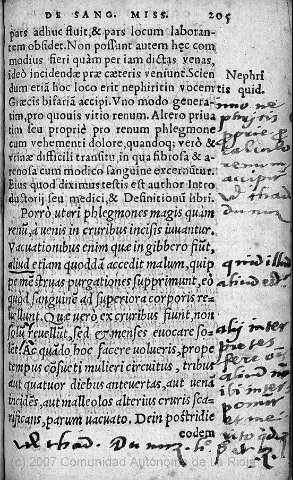 DE SANG. MISS. 205
pars adhuc fluit, & pars locum laboran-
tem obsidet. Non possunt autem hęc com
modius fieri quàm per iam dictas venas,
ideò incidendæ præ cæteris veniunt. Scien
dum etiã hoc loco erit nephritin vocem
Græcis bifariã accipi. Vno modo genera-
tim, pro quouis vitio renum. Altero priua
tim seu propriè pro renum phlegmone
cum vehementi dolore, quandoq; verò &
vrinæ difficili transitu, in qua fibrosa & a-
renosa cum modico sanguine excernũtur.
Eius quod diximus testis est author Intro
ductorij seu medici, & Definitionũ libri.
Porrò uteri phlegmones magis quàm
renũ, a venis in cruribus incisis iuuantur.
Vacuationibus enim quæ in gibbero fiũt,
aliud etiam quoddã accedit malum, quip
pe mẽstruas purgationes supprimunt, eo
quòd sanguinẽ ad superiora corporis re-
uellunt. Quæ verò ex cruribus fiunt, non
solũ reuellũt, sed & menses euocare so-
lẽt. Ac quãdo hoc facere volueris, prope
tempus cõsueti mulieri circuitus, tribus
aut quatuor diebus anteuertas, aut venã
incides, aut malleolos alterius cruris sca-
rificans, parum vacuato. Dein postridie
eodem
Nephri
tis quid.
renum
accipitur
aliud
(c) 2007 Comunidad Autónoma de La Rioja